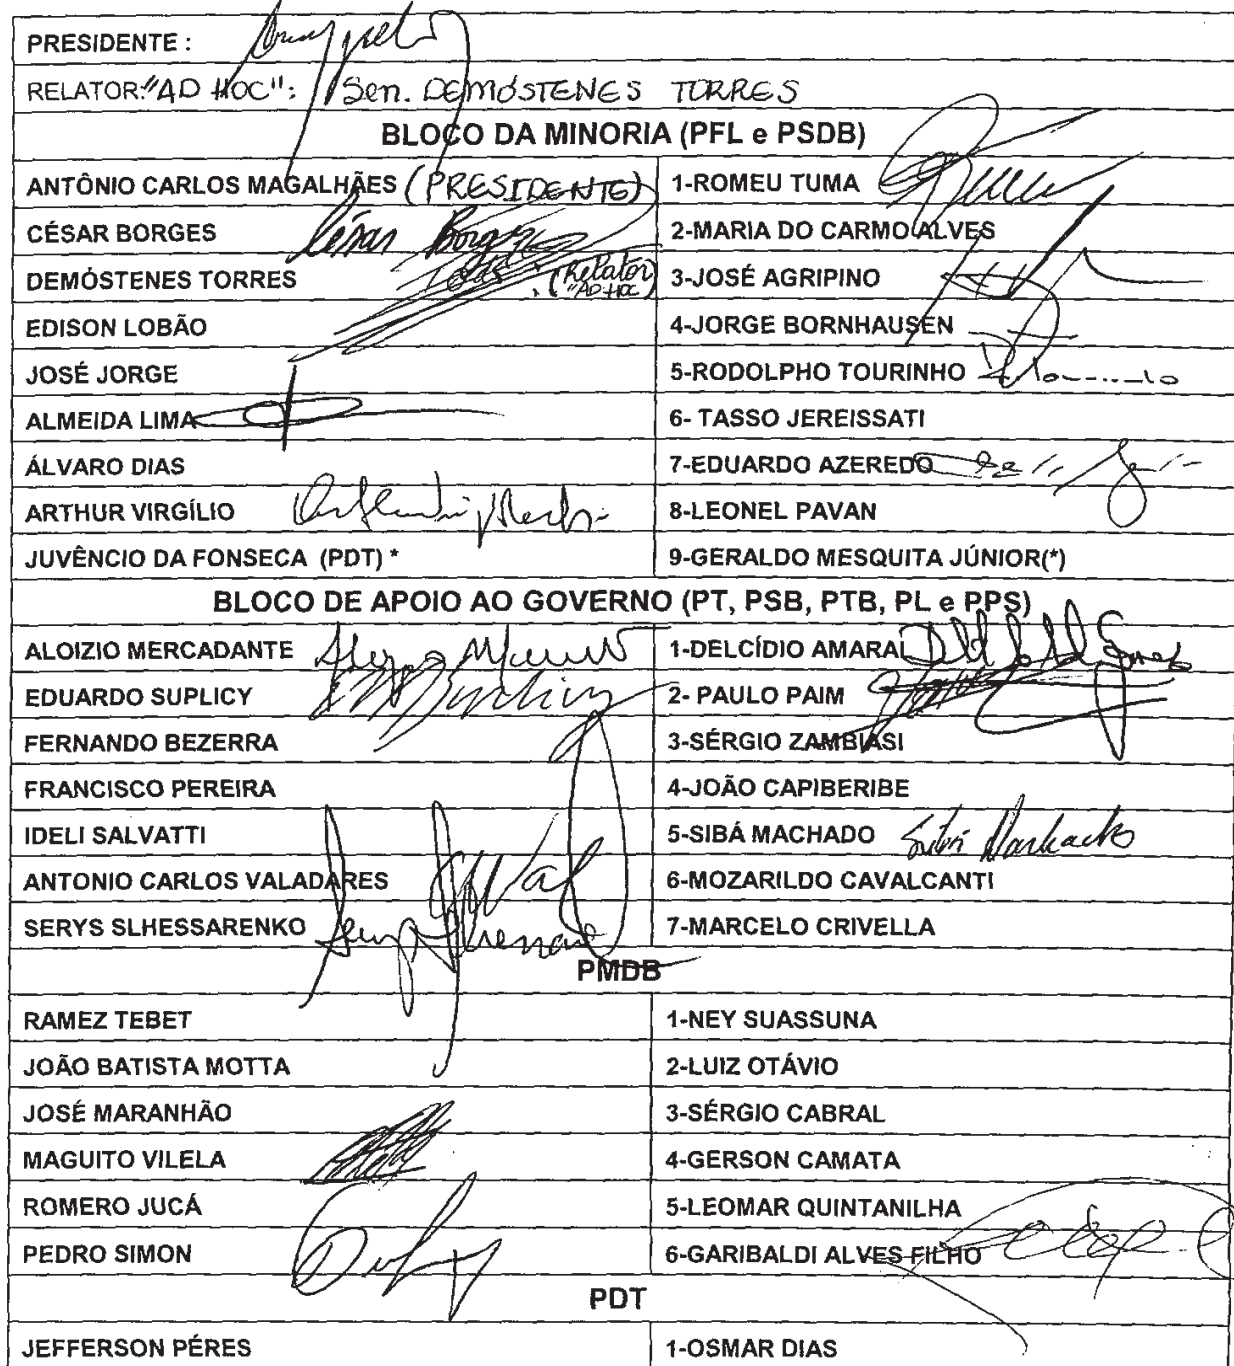 PRESIDENTE :
RELATOR: "AD HOC": Sen. DEMÓSTENES TORRES
BLOCO DA MINORIA (PFL e PSDB)
ANTÔNIO CARLOS MAGALHÃES (PRESIDENTE) 1-ROMEU TUMA
CÉSAR BORGES César Borges 2-MARIA DO CARMO ALVES
DEMÓSTENES TORRES (Relator "AD HOC") 3-JOSÉ AGRIPINO
EDISON LOBÃO 4-JORGE BORNHAUSEN
JOSÉ JORGE 5-RODOLPHO TOURINHO
ALMEIDA LIMA 6- TASSO JEREISSATI
ÁLVARO DIAS 7-EDUARDO AZEREDO
ARTHUR VIRGÍLIO 8-LEONEL PAVAN
JUVÊNCIO DA FONSECA (PDT) * 9-GERALDO MESQUITA JÚNIOR(*)
BLOCO DE APOIO AO GOVERNO (PT, PSB, PTB, PL e PPS)
ALOIZIO MERCADANTE 1-DELCÍDIO AMARAL
EDUARDO SUPLICY Suplicy 2- PAULO PAIM
FERNANDO BEZERRA 3-SÉRGIO ZAMBIASI
FRANCISCO PEREIRA 4-JOÃO CAPIBERIBE
IDELI SALVATTI 5-SIBÁ MACHADO Sibá Machado
ANTONIO CARLOS VALADARES 6-MOZARILDO CAVALCANTI
SERYS SLHESSARENKO 7-MARCELO CRIVELLA
PMDB
RAMEZ TEBET 1-NEY SUASSUNA
JOÃO BATISTA MOTTA 2-LUIZ OTÁVIO
JOSÉ MARANHÃO 3-SÉRGIO CABRAL
MAGUITO VILELA 4-GERSON CAMATA
ROMERO JUCÁ 5-LEOMAR QUINTANILHA
PEDRO SIMON 6-GARIBALDI ALVES FILHO
PDT
JEFFERSON PÉRES 1-OSMAR DIAS